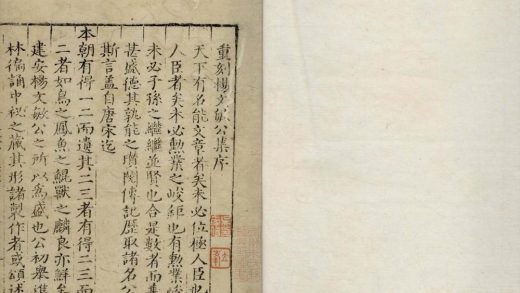 重刻楊文敏公集序
天下有名能文章者矣未必位極人臣也
人臣者矣未必勲業之峻鉅也有勲業峻
未必子孫之繼繼並賢也合是數者而萃
甚盛德其孰能之瓚閱傳記歷取諸名公
斯言蓋自唐宋迄
本朝有得一二而遺其二三者有得二三而
二者如鳥之鳳魚之鯤獸之麟良亦鮮矣
建安楊文敏公之所以為盛也公初舉進
林徧誦中祕之藏其形諸製作者或頌述